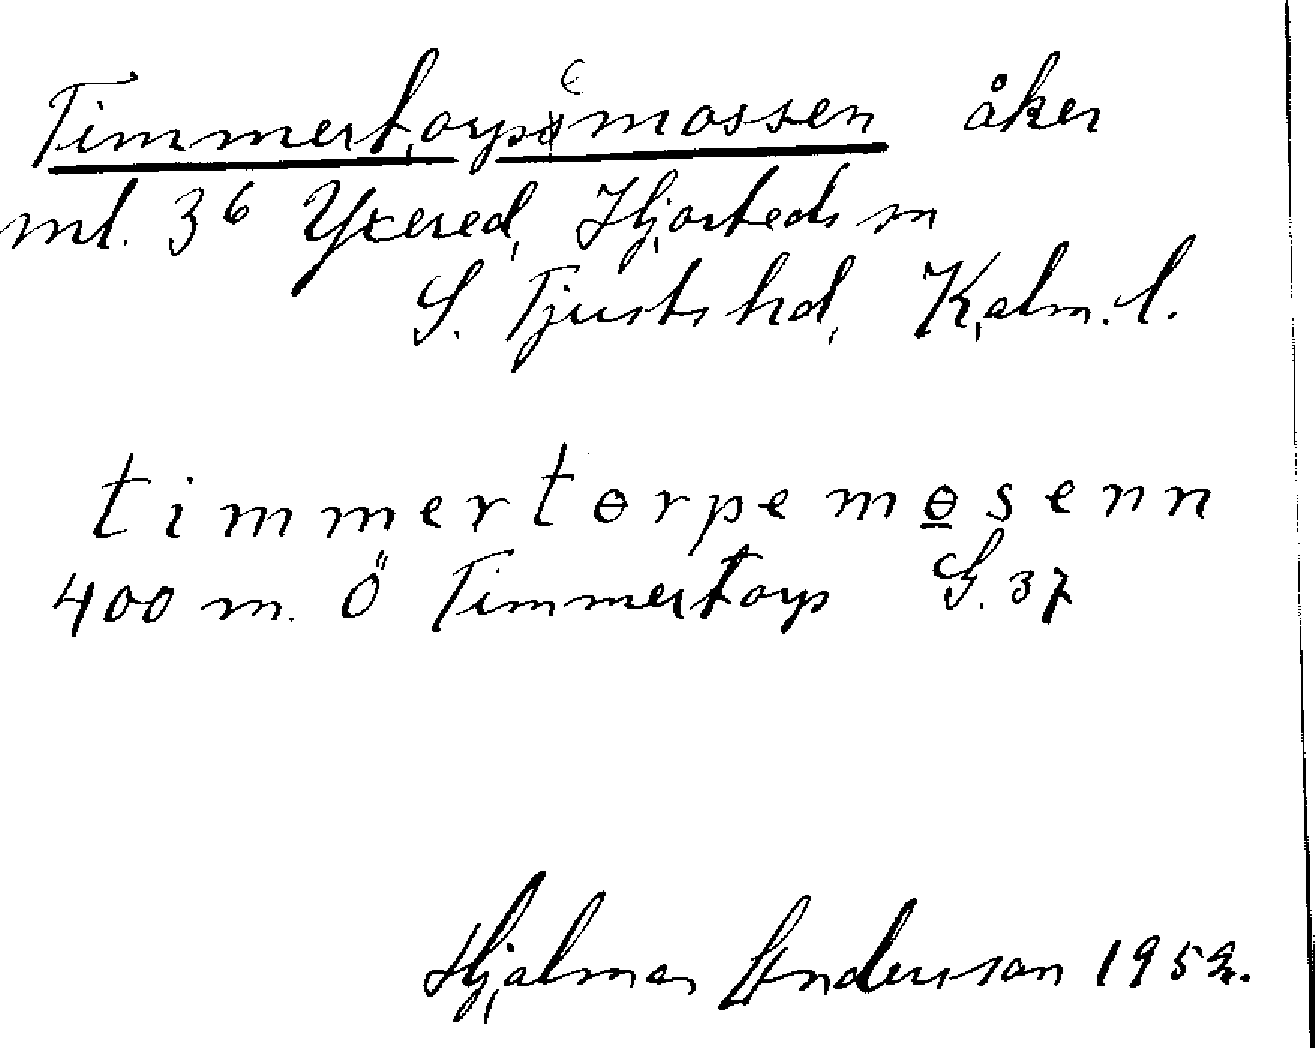 Timmertorpemossen åker
ml. 36 Yxered, Hjorteds sn
S. Tjusts hd, Kalm. l.
timmertɵrpemɵsenn
400 m. Ö Timmertorp G. 37
Hjalmar Anderson 1952.